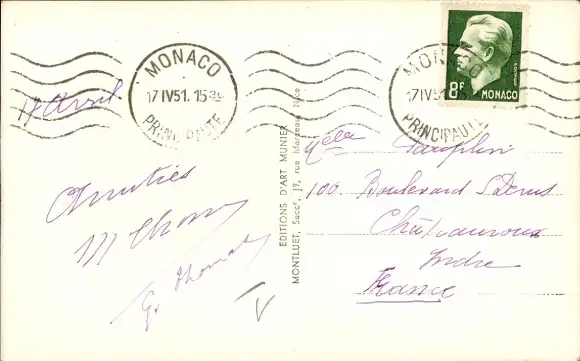 MONACO
17 IV 51. 15
PRINCIPAUTE
MONACO
17 IV 51
PRINCIPAUTE
8F MONACO
17 Avril
Amitiés
M Thomas
G. Thomas
EDITIONS D'ART MUNIER
MONTLUET, Succr, 19, rue Marceau, Nice
Melle
100 Boulevard St Denis
Châteauroux
Indre
France